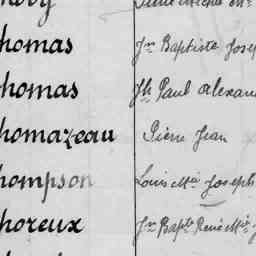 homas Jn Baptiste Josep
homas Jh Paul Alexan
homazeau Pierre Jean
hompson Louis Mie Joseph
horeux Jn Bapte René Mie J